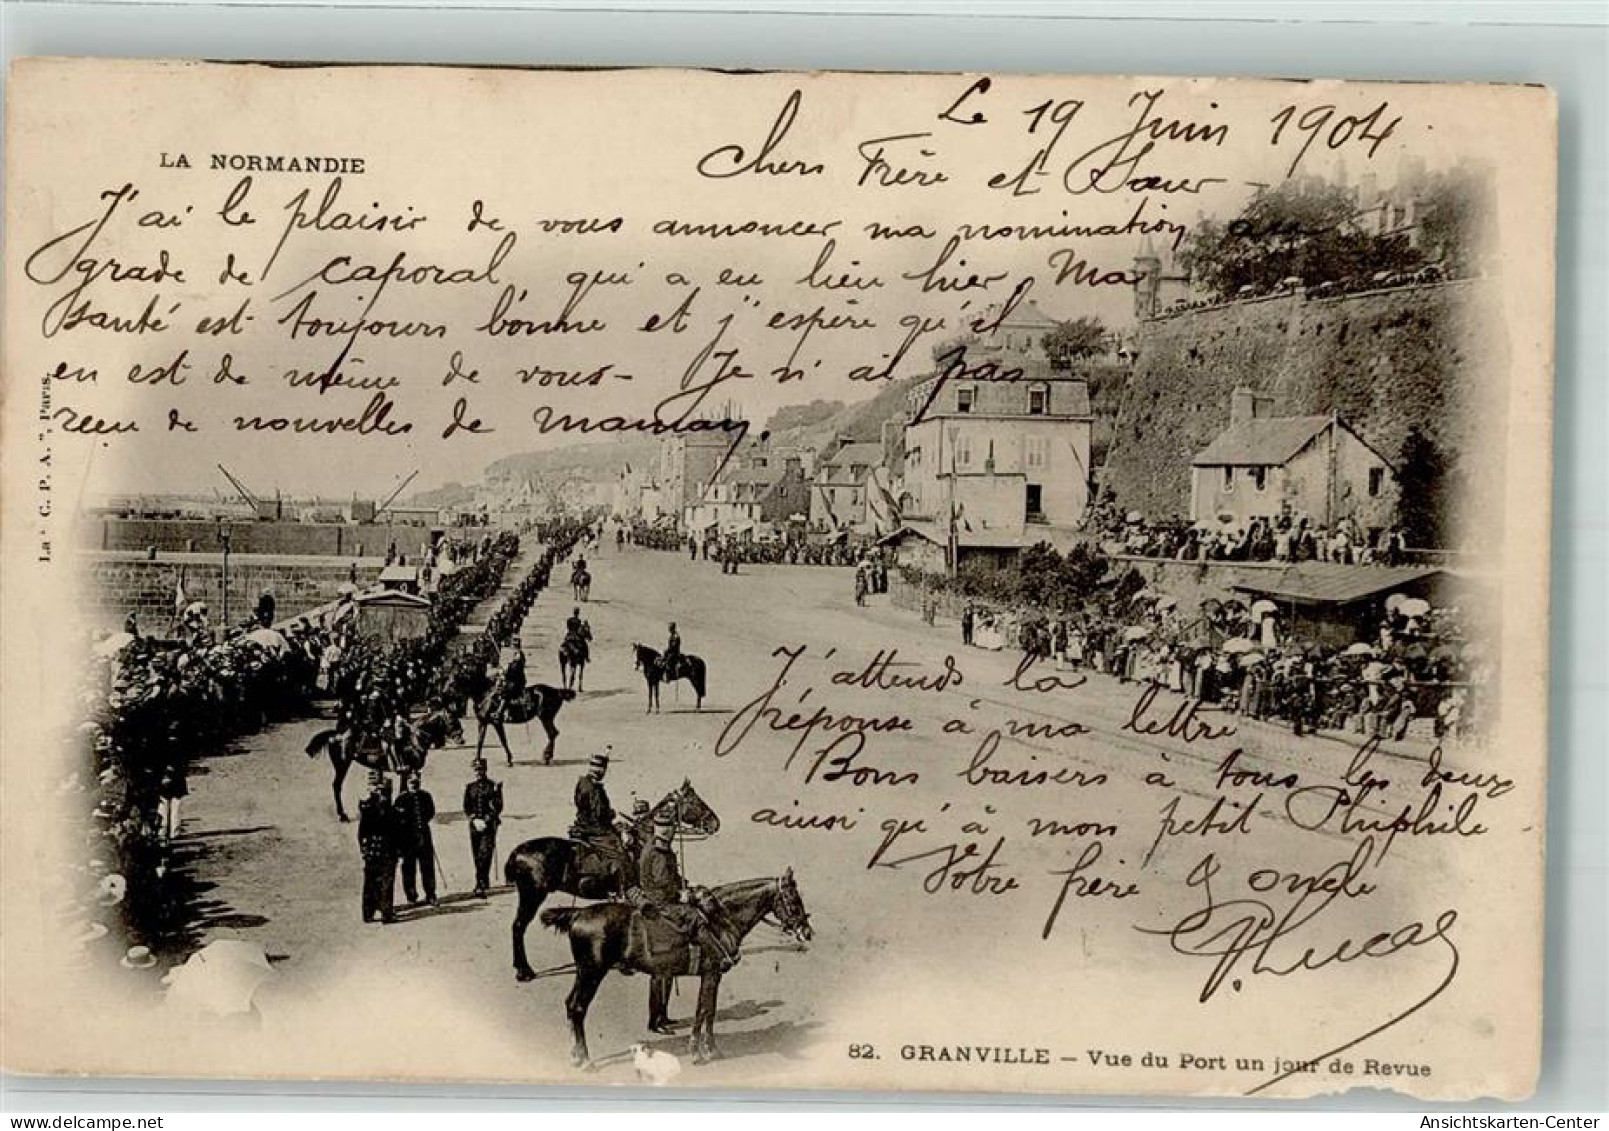 Le 19 Juin 1904
Chers Frère et Sœur
LA NORMANDIE
J'ai le plaisir de vous annoncer ma nomination au
grade de caporal, qui a eu lieu hier. Ma
santé est toujours bonne et j'espère qu'il
en est de même de vous - Je n'ai pas
reçu de nouvelles de maman.
La "C. P. A.", Paris.
J'attends la
réponse à ma lettre
Bons baisers à tous les deux
ainsi qu'à mon petit Phiphile
Votre frère & oncle
Lucas
82. GRANVILLE – Vue du Port un jour de Revue
Ansichtskarten-Center